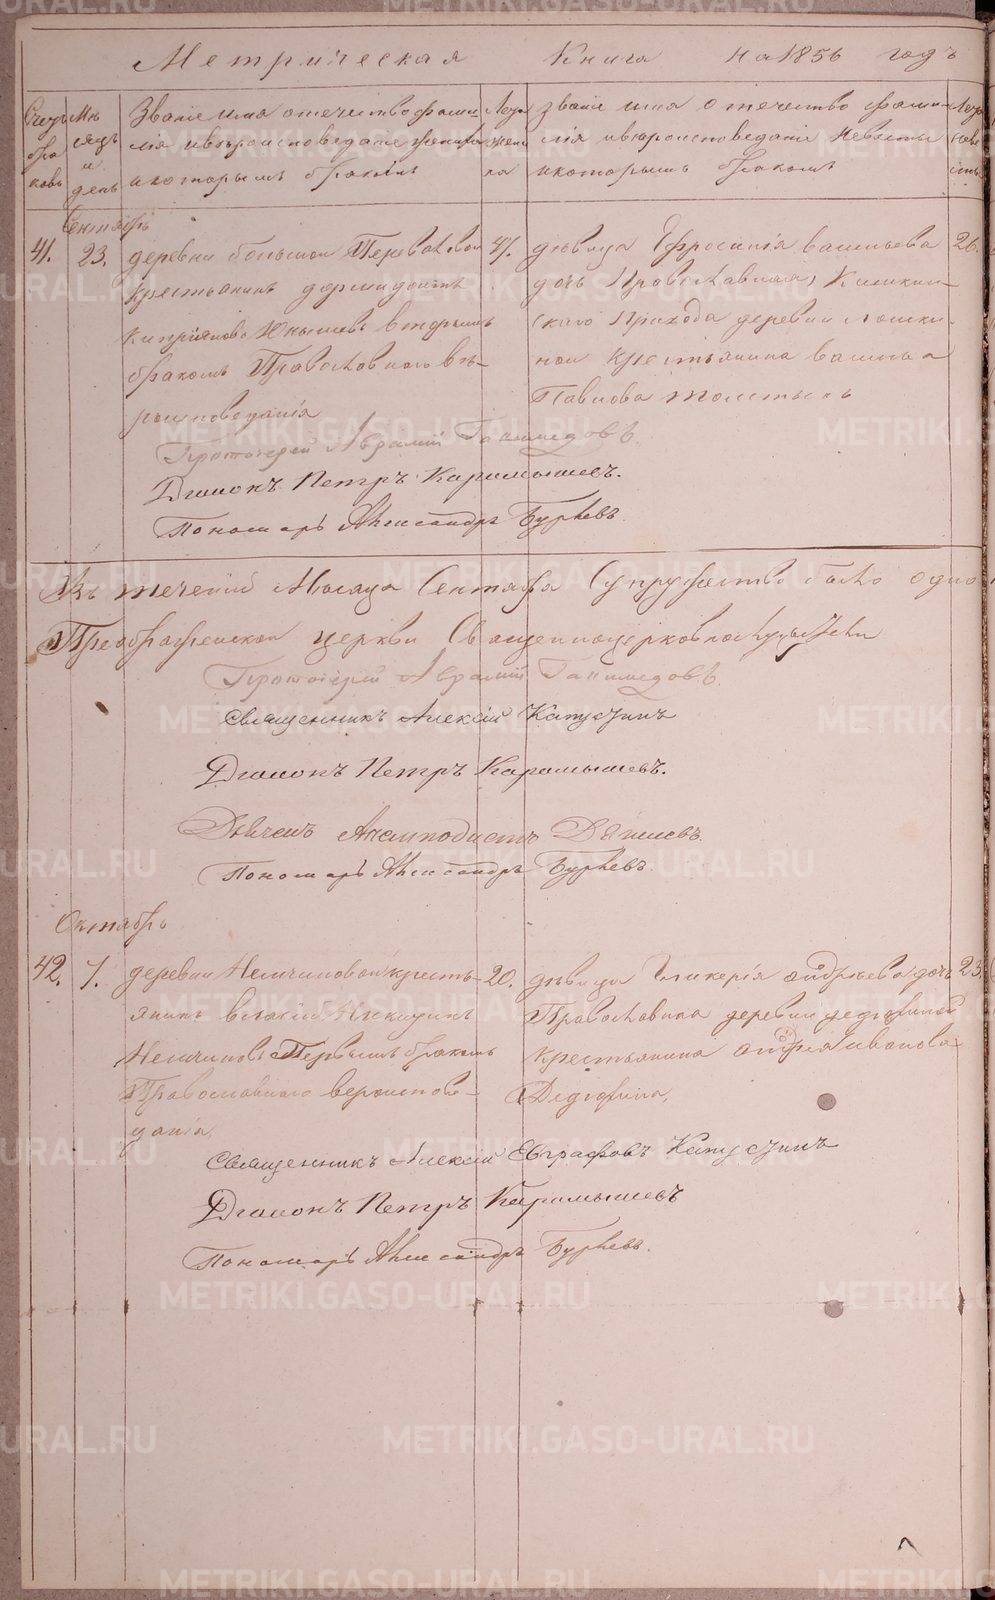 Метрическая Книга на 1856 годъ
Счетъ браковъ
Мѣсяцъ и день
Званіе имя отечество фамилія ивѣроисповеданіе жениха икоторымъ бракомъ
Лета жениха
званіе имя отечество фамилія ивѣроисповеданіе невесты икоторымъ бракомъ
Лета невесты
Сентябрь
41.
23.
деревни большой
крестьянинъ
вторымъ
бракомъ Православного вѣ-
роисповеданія
47.
девица Ефросинія васильева
дочь Православная,
Прихода деревни
крестьянина василья
Павлова
26.
Протоіерей Авраамій Ганимедовъ.
Дьяконъ Петръ Карамышевъ.
Пономарь Александръ
Въ течении Месяца Сентября Супружество было одно
Преображенской церкви Священноцерковнослужители
Протоіерей Авраамій Ганимедовъ.
Священникъ Алексій Капустинъ
Дьяконъ Петръ Карамышевъ.
Дьячекъ
Пономарь Александръ
Октябрь
42.
7.
деревни Немчиновой кресть-
янинъ
Немчиновъ Первымъ бракомъ
Православнаго вероиспове-
данія,
20.
девица Гликерія андреева дочь
Православная деревни дедюхиной
крестьянина андрея иванова
Дедюхина,
23.
Священникъ Алексій Евграфовъ Капустинъ
Дьяконъ Петръ Карамышевъ
Пономарь Александръ
METRIKI.GASO-URAL.RU